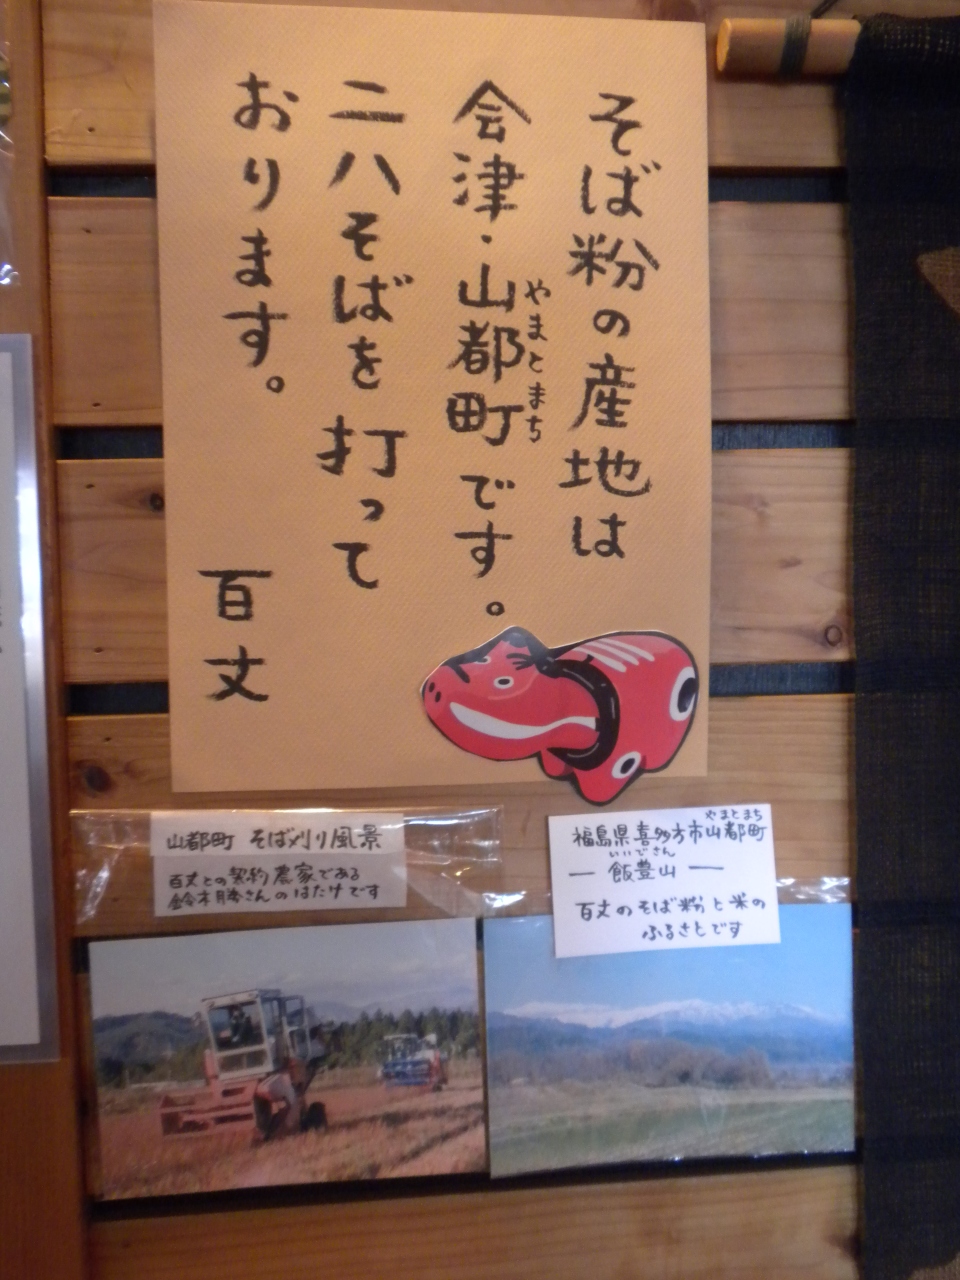 そば粉の産地は
会津・山都町です。
やまとまち
二八そばを打って
おります。
百丈
山都町 そば刈り風景
百丈との契約農家である
鈴木勝さんのはたけです
やまとまち
福島県喜多方市山都町
いいでさん
― 飯豊山 ―
百丈のそば粉と米の
ふるさとです